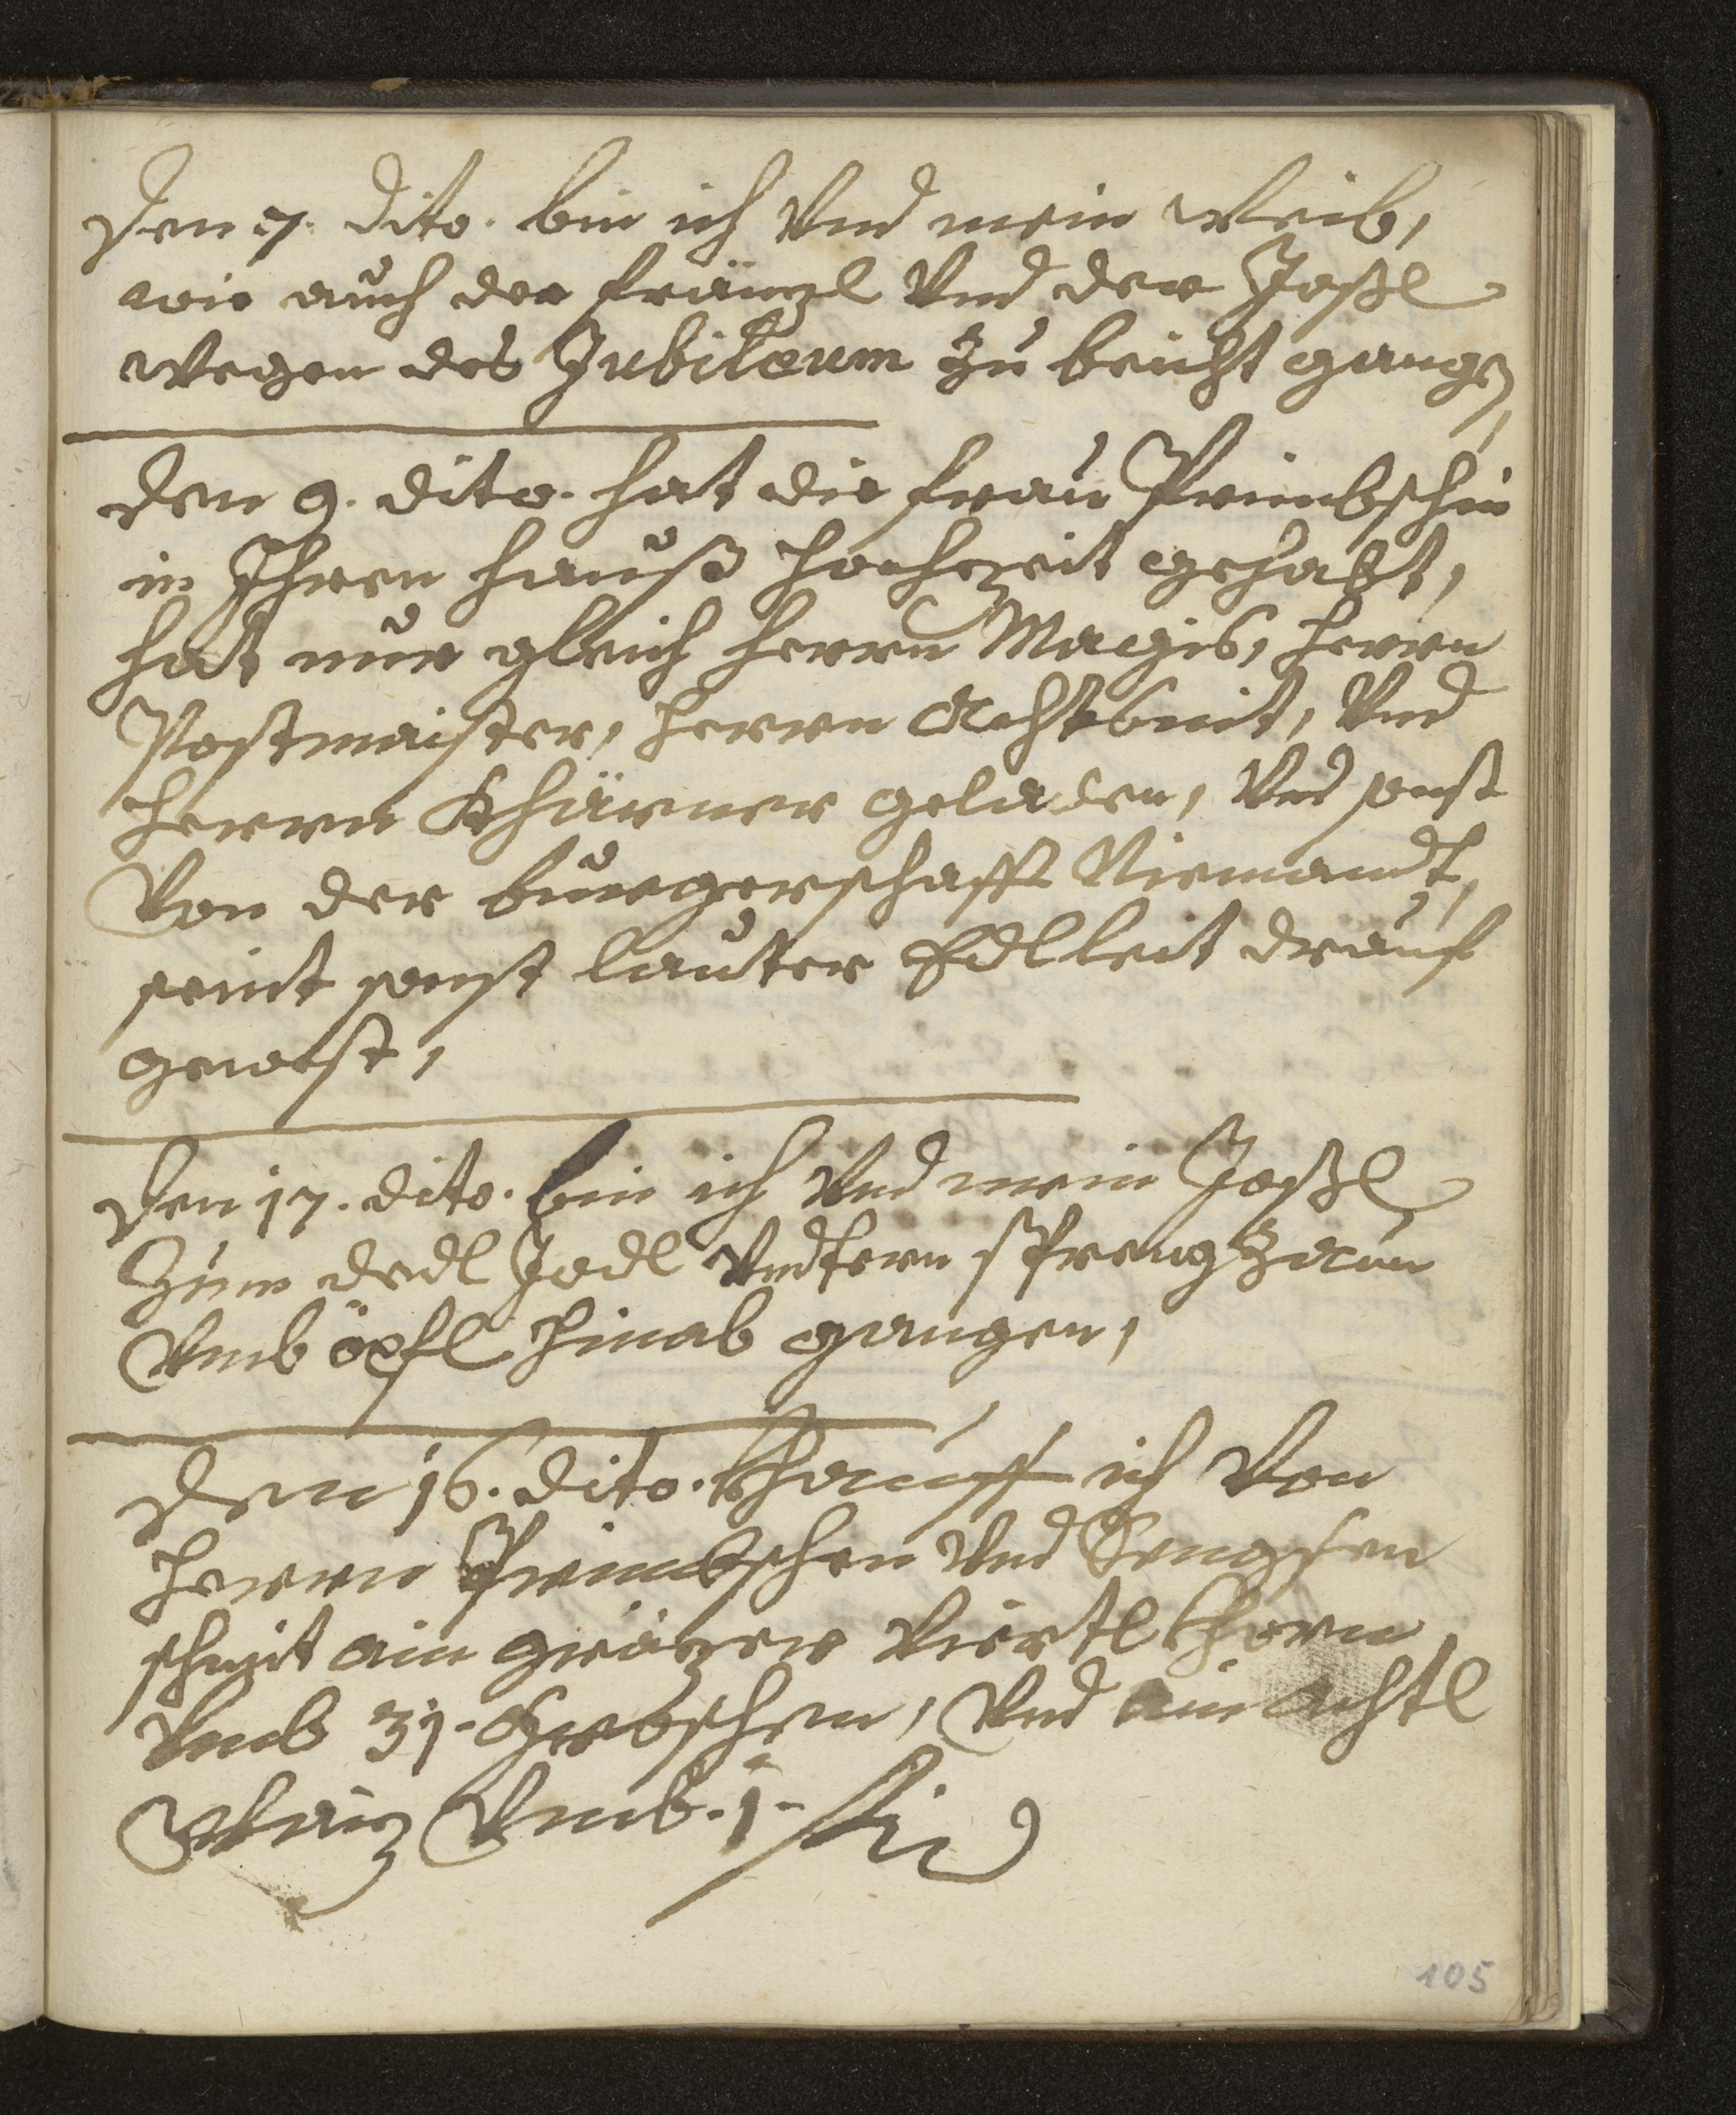 Den 7. dito. bin ich Vnd mein Weib,
wie auch der fränzl Vnd der Joßl
wegen des Jubileum zu beicht gangen,
Den 9. dito. hat die frau Primbschin
in Ihren hauß hochzeit gehabt,
hat nur gleich herrn Magis, herrn
Postmaister, herrn Achtsnit, Vnd
herrn Khärner geladen, Vnd sonst
Von der burgerschafft Niemandt,
seint sonst lauter Edlleit drauf
gewest,
Den 17. dito. bin ich Vnd mein Joßl
zum dedl Jodl Vndtern Sprengzaun
Vmb öpfl hinab gangen,
Den 16. dito. khauff ich Von
herrn Primbschen Vnd Sengsen
schmit ain gräzer Viertl khorn
Vmb 31. Grbschen, Vnd ain Achtl
Waiz Vmb. 1. fl
105